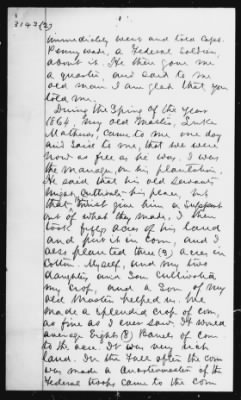 3143 (2)
immediately went and told Capt.
Pennywade, a Federal Soldier
about it. He then gave me
a quarter, and said to me
old man I am glad that you
told me.
During the Spring of the year
1864, my old Master,
Mathews, came to me one day
and said to me, that we were
now as free as he was. I was
the manager on his plantation.
He said that his old servants
might cultivate his place, but
that must give him a support
out of what they made, I then
took fifty acres of his land
and put it in corn, and I
also planted three (3) acres in
Cotton. Myself, and my two
daughters and Son cultivated
my crop, and a Son of my
old Master helped us. We
made a splendid crop of corn,
as fine as I ever saw. It would
average Eight (8) Barrels of corn
to the acre. It was very rich
land. In the Fall after the corn
was made a Quartermaster of the
Federal troops came to the corn